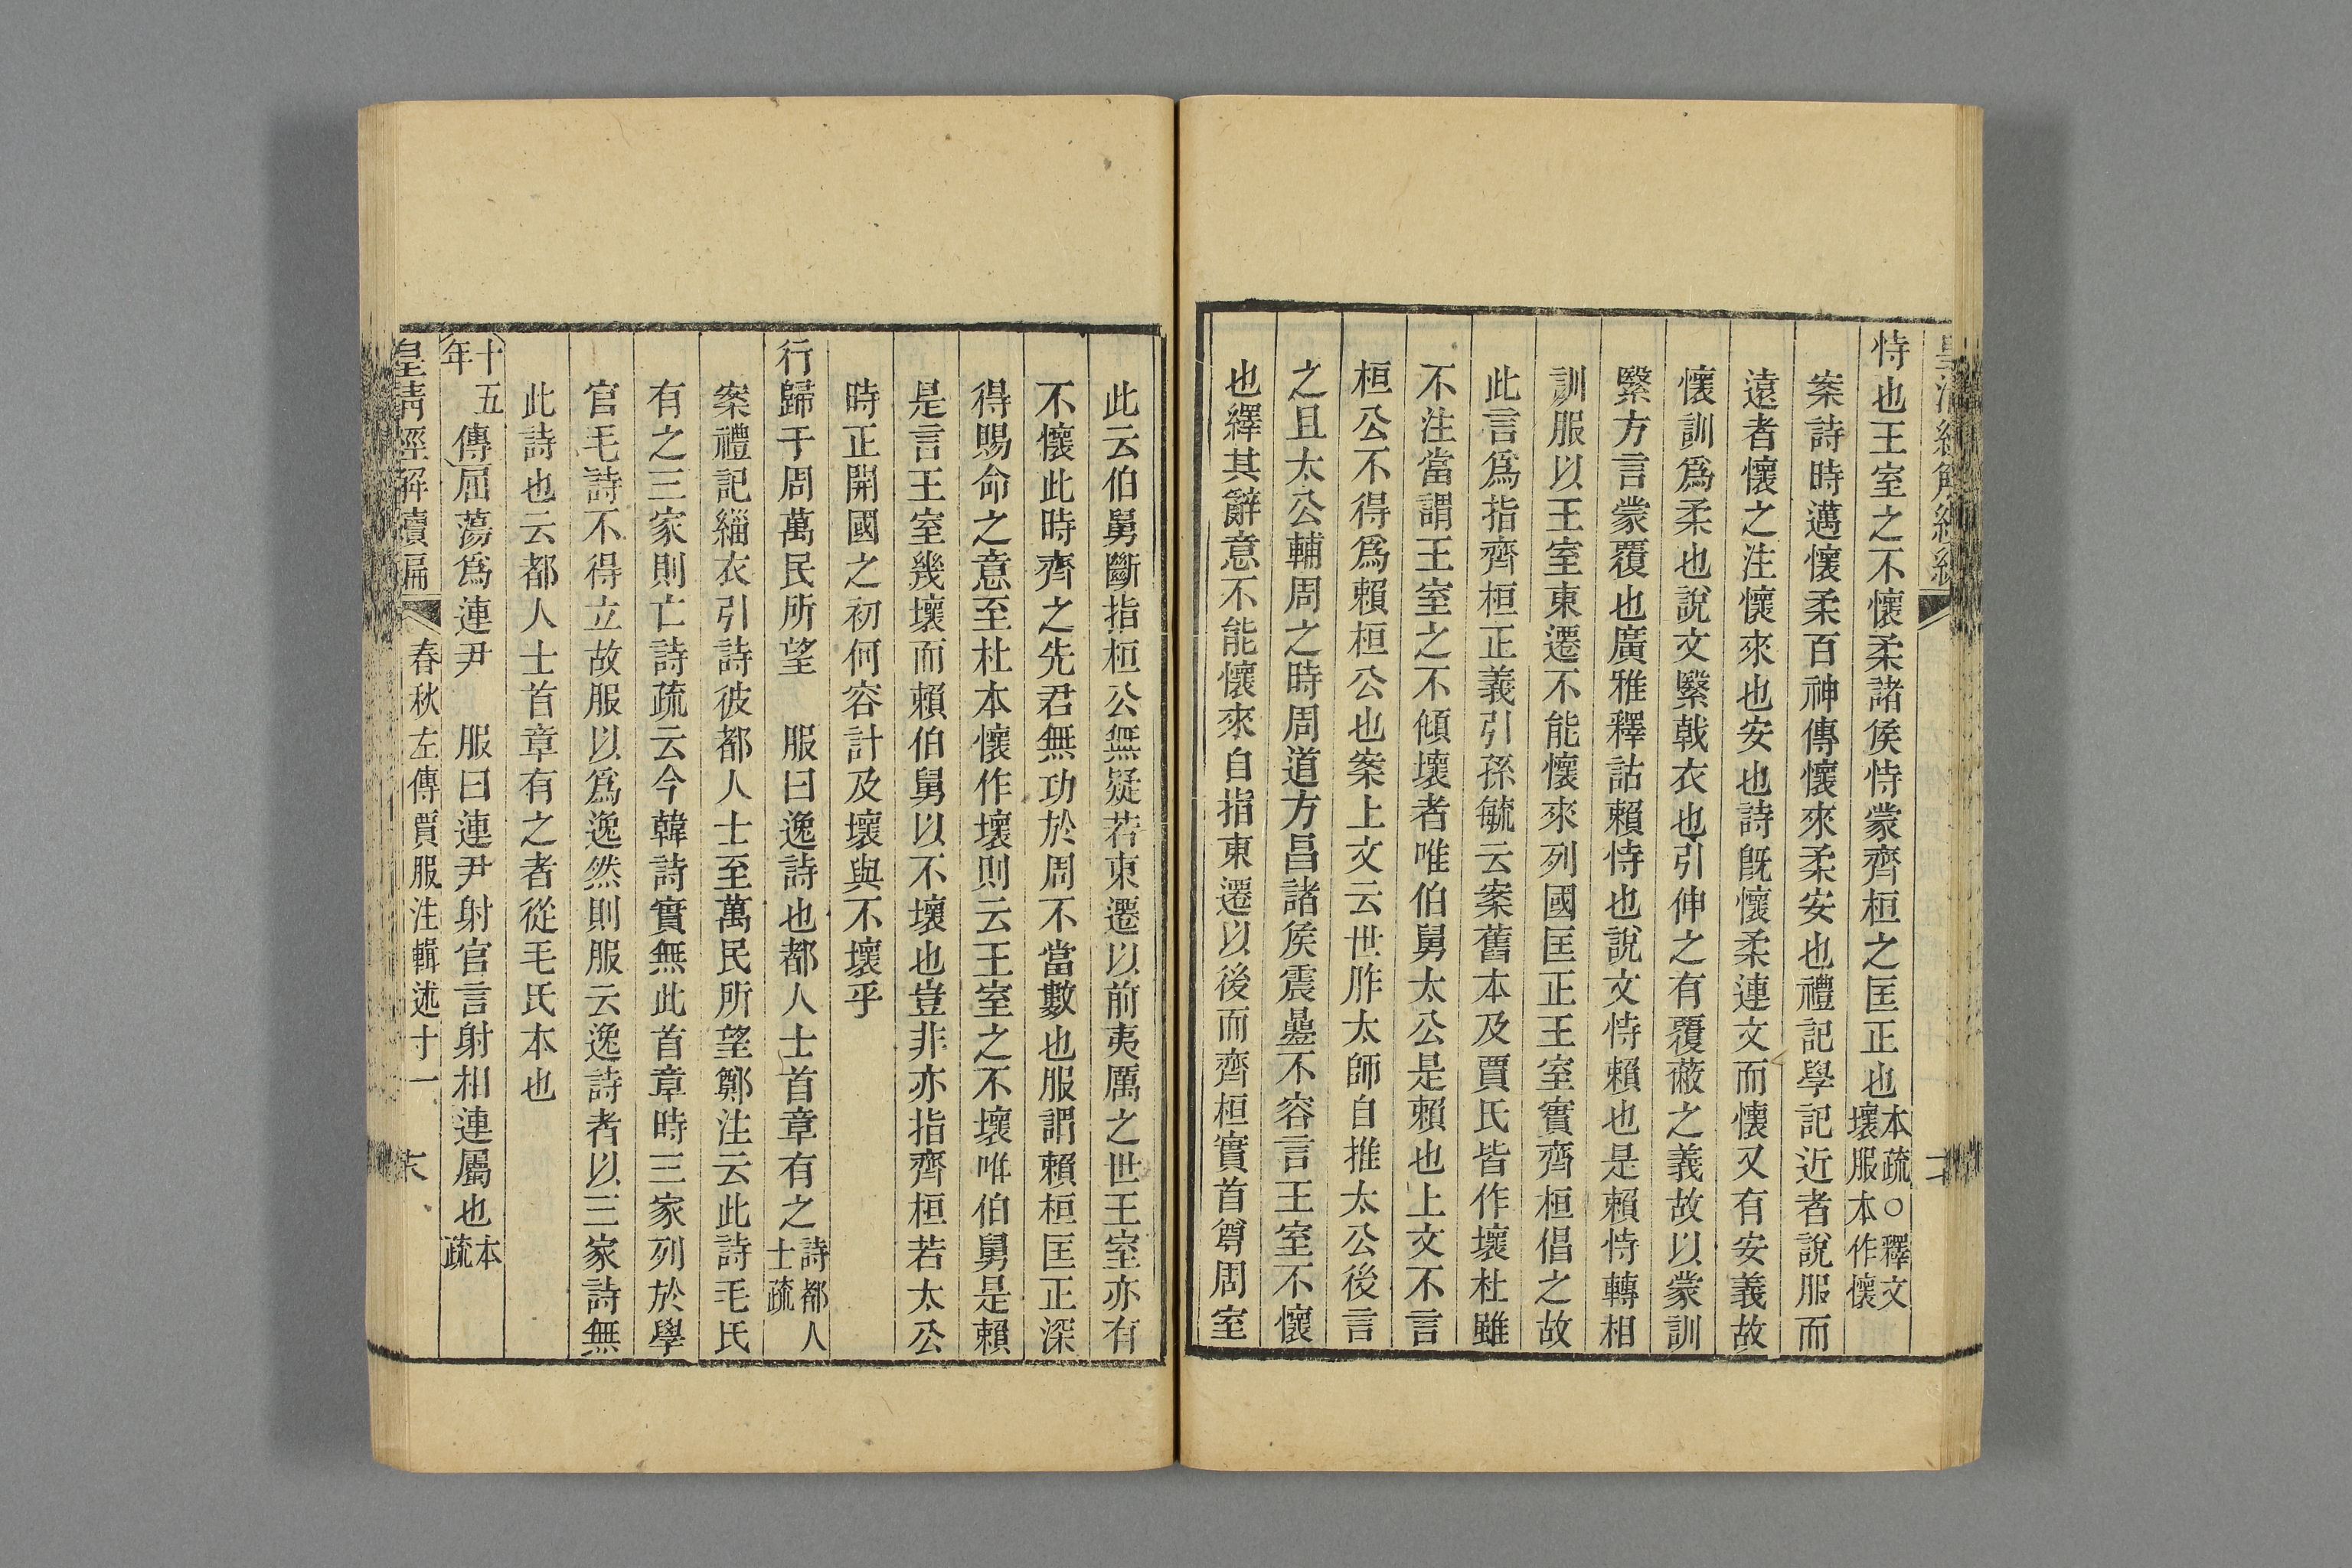 恃也王室之不懷柔諸侯恃蒙齊桓之匡正也本疏○釋文壞服本作懷
案詩時邁懷柔百神傳懷來柔安也禮記學記近者說服而
遠者懷之注懷來也安也詩旣懷柔連文而懷又有安義故
懷訓爲柔也說文繄戟衣也引伸之有覆蔽之義故以蒙訓
繄方言蒙覆也廣雅釋詁賴恃也說文恃賴也是賴恃轉相
訓服以王室東遷不能懷來列國匡正王室實齊桓倡之故
此言爲指齊桓正義引孫毓云案舊本及賈氏皆作壞杜雖
不注當謂王室之不傾壞者唯伯舅太公是賴也上文不言
桓公不得爲賴桓公也案上文云世胙太師自推太公後言
之且太公輔周之時周道方昌諸侯震疊不容言王室不懷
也繹其辭意不能懷來自指東遷以後而齊桓實首尊周室
此云伯舅斷指桓公無疑若東遷以前夷厲之世王室亦有
不懷此時齊之先君無功於周不當數也服謂賴桓匡正深
得賜命之意至杜本懷作壞則云王室之不壞唯伯舅是賴
是言王室幾壞而賴伯舅以不壞也豈非亦指齊桓若太公
時正開國之初何容計及壞與不壞乎
行歸于周萬民所望　服曰逸詩也都人士首章有之詩都人士疏
案禮記緇衣引詩彼都人士至萬民所望鄭注云此詩毛氏
有之三家則亡詩疏云今韓詩實無此首章時三家列於學
官毛詩不得立故服以爲逸然則服云逸詩者以三家詩無
此詩也云都人士首章有之者從毛氏本也
十五年傳屈蕩爲連尹　服曰連尹射官言射相連屬也本疏
皇清經解續編　春秋左傳賈服注輯述十一